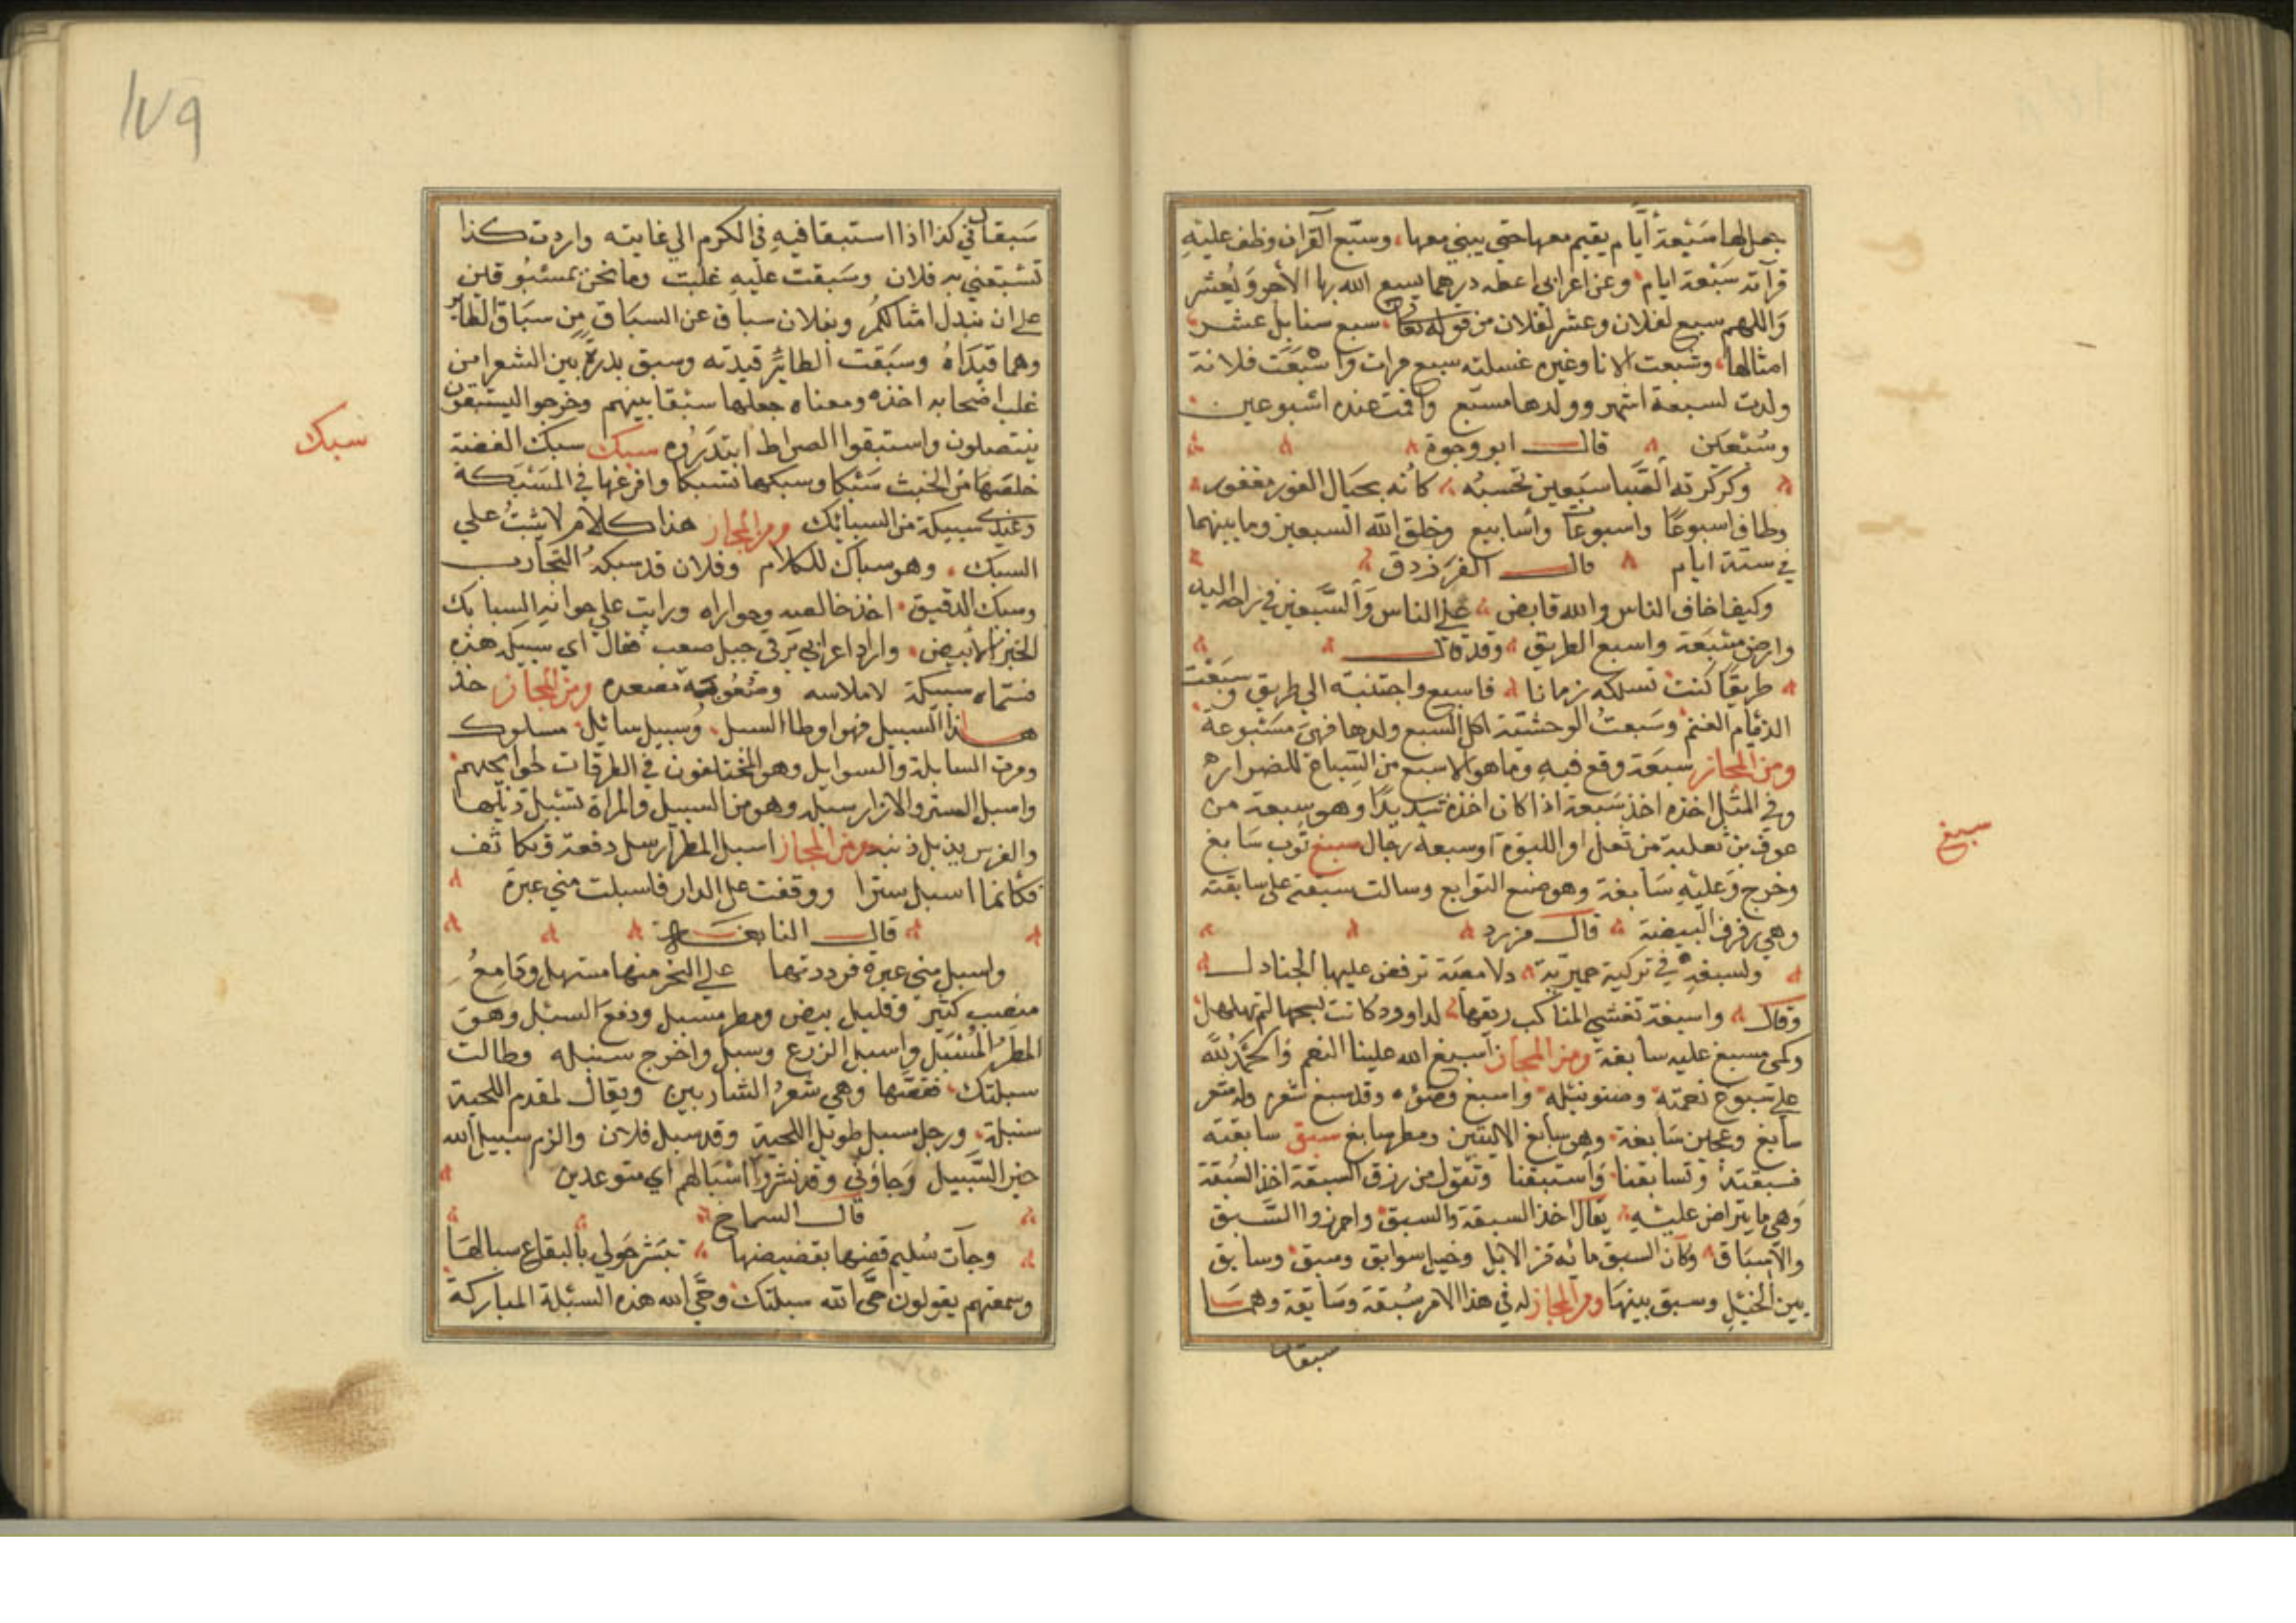 جعل لها سبعة أيام يقيم معها حتى يبني معها، وسبع القرآن وظف عليه
قرآته سبعة ايام وعن اعرابي اعطه درهما يسبع الله بها الأجر ويعشر
واللهم سبع لفلان وعشر لفلان من قوله تعالى سبع سنابل عشر
امثالها، وسبعت الانا وغيره غسلته سبع مرات واسبعت فلانة
ولدت لسبعة اشهر وولدها مسبع واقمت عنده اسبوعين
وسبعين قال ابو وجوة
وكركرته الصبا سبعين تحسبه كانه بحيال الغور مغفور
وطاف اسبوعا واسبوعا واسابيع وخلق الله السبعين وما بينهما
في ستة ايام قال الفرزدق
وكيف اخاف الناس والله قابض على الناس والسبعين في راحة اليد
وارض مسبعة واسبع الطريق وقد قال
طريقا كنت تسلكه زمانا فاسبع واجتنبته الى طريق وسبعت
الذئام الغنم وسبعت الوحشية اكل السبع ولدها فهي مسبوعة
ومن المجاز سبعة وقع فيه وما هو الا سبع من السباع للضراره
وفي المثل اخذه اخذ سبعة اذا كان اخذه شديدا وهو سبعة من
عوف بن ثعلبة من ثعل او اللبؤة او سبعة رجال سبغ ثوب سابغ
وخرج وعليه سابغة وهو صنع التوابع وسالت سبغته على سابغته
وهي رفرف البيضة قال مزرد
ولسبغه في تركية حميرية دلامصة ترفض عليها الجنادل
وقال واسبغة تغشى المناكب ريعها لداوود كانت نسجها لم يهلهل
وكمي مسبغ عليه سابغة ومن المجاز اسبغ الله علينا النعم والحمد لله
على سبوغ نعمته وضفو نيله واسبغ وضؤه وقد سبغ شعره وله شعر
سابغ وعجين سابغة وهو سابغ الاليتين ومطر سابغ سبق سابقته
فسبقته وتسابقنا واستبقنا وتقول من رزق السبقة اخذ السبقة
وهي ما يتراض عليه يقال اخذ السبقة والسبق واحرزوا السبق
والاسباق وكان السبق مائه من الابل وخيل سوابق وسبق وسابق
بين الخيل وسبق بينها ومن المجاز له في هذا الامر سبقة وسابقة وهما
سبقان
سبغ
١٧٩
سبقان في كذا اذا استبقا فيه في الكرم الى غايته واردت كذا
تسبقني به فلان وسبقت عليه غلبت وما نحن بمسبوقين
على ان نبدل امثالكم وبفلان سباق عن السباق من سباق الطاير
وهما قيداه وسبقت الطائر قيدته وسبق بدرة بين الشعرا من
غلب اصحابه اخذه ومعناه جعلها سبقا بينهم وخرجوا ليستبقون
ينتصلون واستبقوا الصراط ابتدروه سبك سبك الفضة
خلصها من الخبث سبكا وسبكها تسبيكا وافرغها في المسبكة
وعندي سبيكة من السبائك ومن المجاز هذا كلام لا يثبت على
السبك، وهو سباك للكلام وفلان قد سبكته التجارب
وسبك الدقيق اخذ خالصه وحواراه ورايت على خوانه السبايك
الخبز الأبيض، واراد اعرابي ترقي جبل صعب فقال اي سبيكة هذه
فسماه سبيكة لاملاسه وصعوبة مصعده ومن المجاز خذ
هذا السبيل فهو اوطا السبل، وسبيل سابل مسلوك
ومرت السابلة والسوابل وهو المختلفون في الطرقات لحوائجهم
واسبل الستر والازار سبله وهو من السبيل والمراة تسبل ذيلها
والفرس يذبل ذنبه ومن المجاز اسبل المطر ارسل دفعة وتكاثف
فكأنما اسبل سترا ووقفت على الدار فاسبلت مني عبرة
قال النابغة
واسبل مني عبرة فرددتها على النحر منها مستهل ودامع
منصب كثير وقليل بيض ومطر مسبل ودفع السبل وهو
المطر المسبل واسبل الزرع وسبل واخرج سنبله وطالت
سبلتك فقصها وهي شعر الشاربين ويقال لمقدم اللحية
سبلة، ورجل مسبل طويل اللحية وقد سبل فلان والزم سبيل الله
خير السبيل وجاؤني وقد نشروا اسبالهم اي متوعدين
قال السماخ
وجآت سليم قضها بقضيضها تنشر حولي بالبقاع سبالها
وسمعتهم يقولون حي الله سبلتك وحي الله هذه السبلة المباركة
سبك